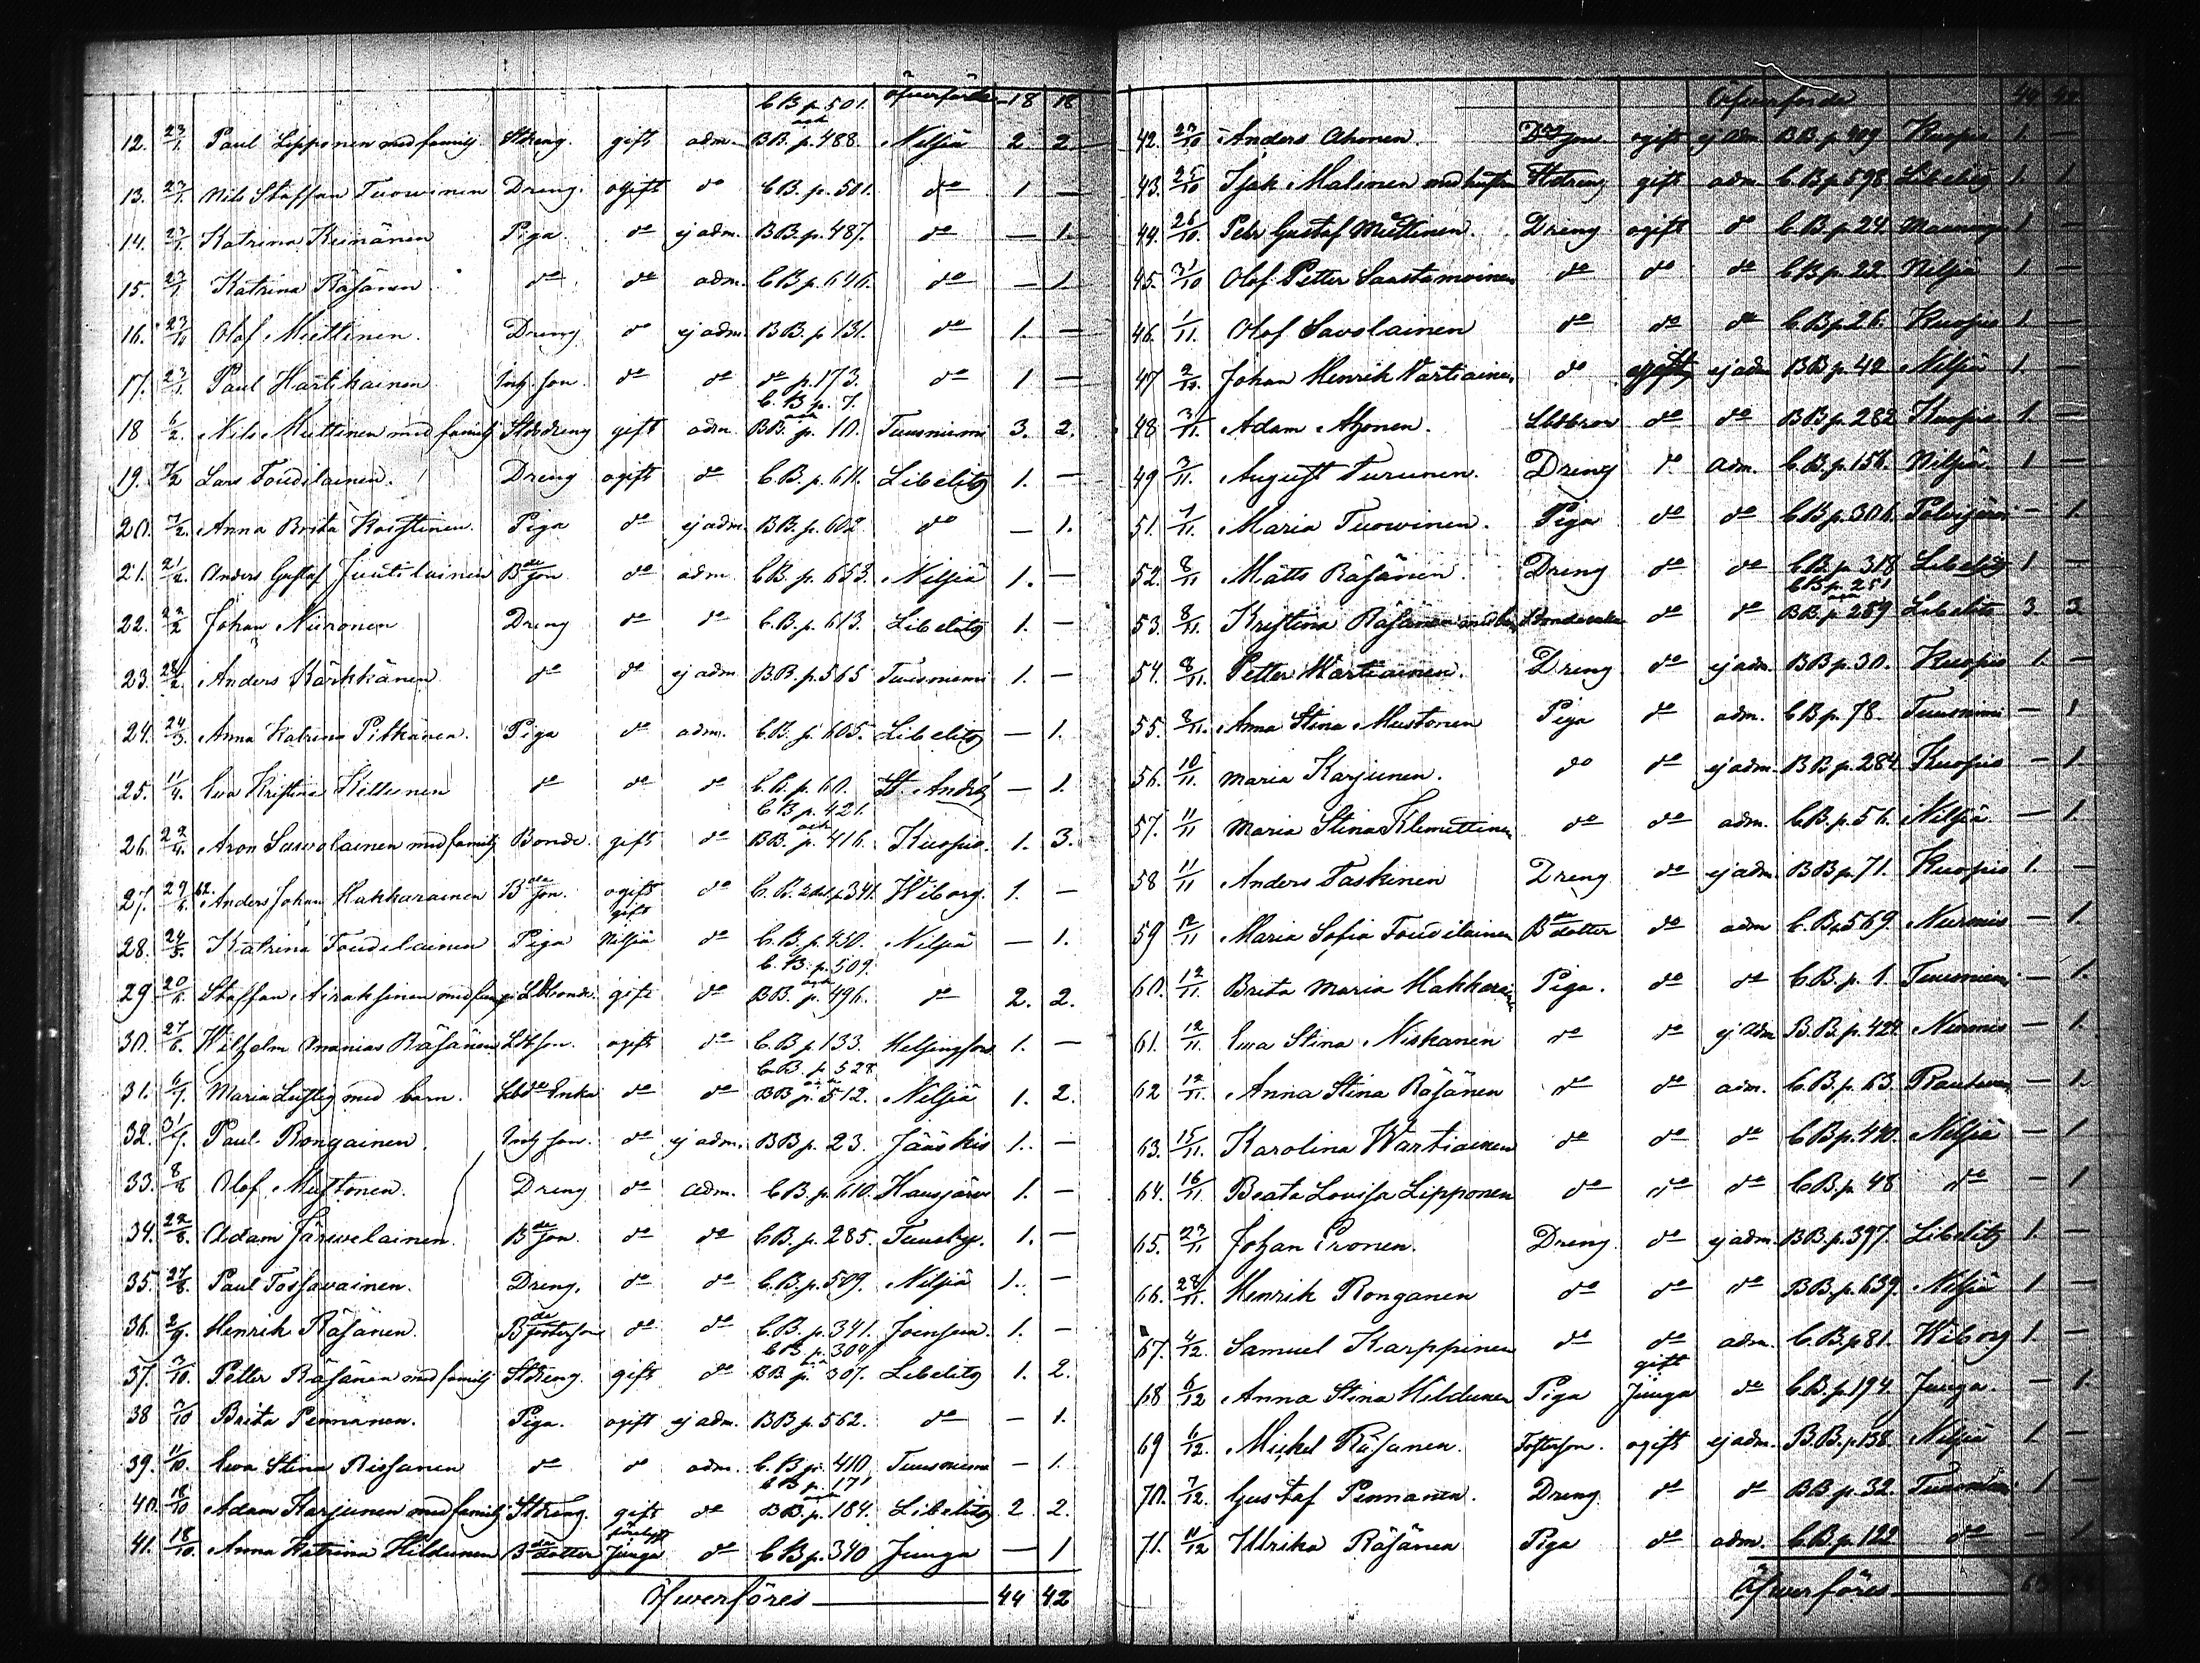 C.B. p. 501. öfverförde — 18 18
12. 23/1. Paul Lipponen med familj. Stdreng. gift adm. och BB. p. 488. Nilsiä 2. 2
13. 23/1. Nils Staffan Tuovinen Dreng. ogift do C.B. p. 501. do 1 —
14. 23/1. Katrina Keinänen Piga. do ej adm. BB. p. 487. do — 1.
15. 23/1 Katrina Räsänen do do adm. C.B. p. 646. do — 1
16. Olof Miettinen. Dreng do ej adm. BB. p. 131. do 1. —
17. 23/1. Paul Hartikainen Inh. son. do do do p. 173. do 1 —
C.B. p. 7.
18 6/2. Nils Miettinen med familj Stdreng gift adm. och BB. p. 10. Tuusniemi 3. 2.
19. 7/2 Lars Toudilainen. Dreng ogift do C.B. p. 611. Libelitz 1. —
20. 7/2. Anna Brita Koistinen. Piga do ej adm. BB. p. 602. do — 1.
21. 21/2. Anders Gustaf Juutilainen Bde son do adm. C.B. p. 653. Nilsiä 1. —
22. 22/2 Johan Niironen Dreng do do C.B. p. 613. Libelitz 1. —
23. 28/2. Anders Kärkkänen do do ej adm. B.B. p. 565 Tuusniemi 1. —
24. 24/3. Anna Katrina Pitkänen. Piga do adm. C.B. p. 605. Libelitz — 1.
25. 11/4. Ewa Kristina Kettunen do do do C.B. p. 60. St. André — 1.
C.B. p. 421.
26. 22/4. Aron Sawolainen med familj Bonde. gift do och BB. p. 416. Kuopio. 1. 3.
27. 62. Anders Johan Kakkarainen Bde son. ogift do C.B. 2 del. p. 341. Wiborg. 1. —
28. 24/5. Katrina Toudelainen Piga gift Nilsiä do C.B. p. 450. Nilsiä — 1.
C.B. p. 509.
29 20/6. Staffan Airaksinen med familj Lbbonde. gift do och BB. p. 496. do 2. 2.
30. 27/6. Wilhelm Ananias Räsänen Lbson. ogift do C.B. p. 133. Helsingfors 1. —
C.B. p. 528
31. 6/7. Maria Luttig med barn. Lbde Enka do do och BB p. 512. Nilsiä 1. 2.
32. 31/7. Paul Rongainen. Inh. son. do ej adm. BB p. 23. Jääskis 1. —
33. 8/8 Olof Mustonen. Dreng do adm. C.B. p. 610. Hausjärvi 1. —
34. 22/8. Adam Järwelainen. Bde son. do do C.B. p. 285. Tuusby. 1. —
35. 27/8. Paul Tossawainen. Dreng. do do C.B. p. 509. Nilsiä 1. —
36. 2/9. Henrik Räsänen. Bde fosterson do do C.B. p. 341. Joensuu. 1. —
C.B. p. 304
37. 3/10. Petter Räsänen med familj Stdreng. gift do BB. p. 307. Libelitz 1. 2.
38 7/10 Brita Pennanen. Piga. ogift ej adm. BB p. 562. do — 1.
39. 11/10. Ewa Stina Rissanen do do adm. C.B. p. 410. Tuusniemi — 1.
C.B. p. 171
40. 18/10 Adam Karjunen med familj Stdreng. gift do och BB. p. 184. Libelitz 2. 2.
41. 18/10. Anna Katrina Hiltunen Bde dotter Juuga do C.B. p. 340 Juuga — 1
Öfverföres — 44 42
Öfverförde
42. 23/10 Anders Ahonen. ogift ej adm BB. p. Kuopio 1. —
43. 25/10 Isak Malinen med hustru Stdreng gift adm C.B. p. 598 Libelitz 1. 1
44. 26/10. Pehr Gustaf Miettinen. Dreng ogift do C.B. p. 24. Maaninga 1 —
45. 31/10 Olof Petter Saastamoinen do do do C.B. p. 22 Nilsiä 1. —
46. 1/11. Olof Savolainen do do do C.B. p. 26. Kuopio 1. —
47 Johan Henrik Vartiainen do ogift ej adm BB p. 42. Nilsiä 1. —
48 3/11. Adam Ahonen. do do BB p. 282 Kuopio 1. —
49 3/11. August Turunen. Dreng do adm. C.B. p. 156. Nilsiä 1 —
51. 7/11 Maria Tuovinen. Piga do do C.B. p. 306. Polvijärvi — 1
52. 8/11 Matts Räsänen. Dreng do do C.B. p. 318 Libelitz 1 —
C.B. p. 251
53. 8/11. Kristina Räsänen do do och BB. p. 259 Libelitz 3. 3
54. 8/11. Petter Wartiainen. Dreng do ej adm. BB p. 30. Kuopio 1. —
55. 8/11. Anna Stina Mustonen Piga do adm. C.B. p. 78. Tuusniemi — 1
56. 10/11. Maria Karjunen. do do ej adm. BB. p. 284 Kuopio — 1.
57. 11/11 Maria Stina Klemettinen do do adm. C.B. p. 56. Nilsiä — 1.
58 11/11 Anders Taskinen Dreng do ej adm BB p. 71. Kuopio 1. —
59 12/11 Maria Sofia Toudilainen Bde dotter do adm C.B. p. 569. Nurmis — 1.
60. 12/11. Brita Maria Kakkarainen Piga. do do C.B. p. 1. Tuusniemi — 1.
61. 12/11. Ewa Stina Niskanen do do ej adm B.B. p. 424. Nurmis — 1.
62 12/11. Anna Stina Räsänen do do adm. C.B. p. 63. — 1.
63. 15/11. Karolina Wartiainen do do do C.B. p. 440. Nilsiä — 1
64. 16/11. Beata Lovisa Lipponen do do do C.B. p. 48 do — 1
65. 23/11 Johan Pronen. Dreng do ej adm. BB. p. 397. Libelitz 1. —
66. 28/11. Henrik Ronganen do do do BB. p. 639. Nilsiä 1 —
67. 4/12. Samuel Karppinen do do adm. C.B. p. 81. Wiborg 1. —
68 6/12 Anna Stina Hiltunen Piga gift Juuga do C.B. p. 194. Juuga. — 1.
69 6/12. Michel Räsänen. Fosterson. ogift ej adm. B.B. p. 138. Nilsiä 1. —
70. 7/12. Gustaf Pennanen. Dreng do do BB p. 32. Tuusniemi 1 —
71. 11/12 Ulrika Räsänen Piga do adm. C.B. p. 122 do — 1
Öfverföres —